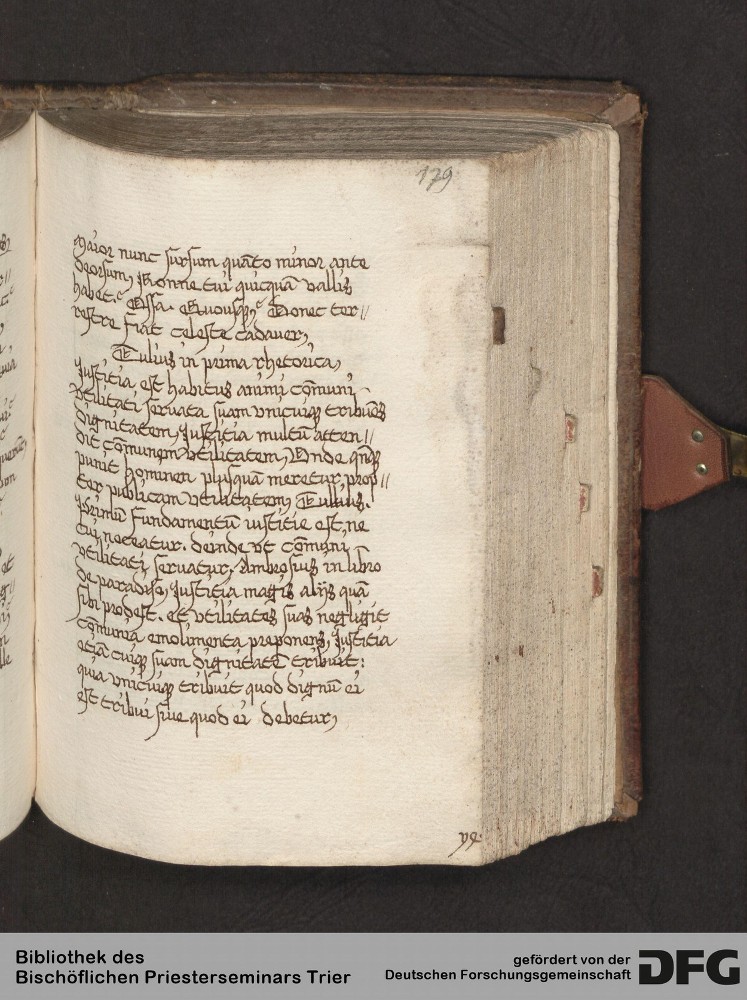 179
Maior nunc sursum quāto minor ante
deorsum, Nonne tui quicquā vallis
habet? Ossa. Quousq? Donec ter//
restre fiat celeste cadauer,
Tulius in prima rhetorica,
Justitia est habitus animi cōmuni
vtilitati seruata suam vnicuiq tribuēs
dignitatem, Justitia multū atten//
dit cōmunem vtilitatem, Unde qnq
punit hominem plusquā meretur prop//
ter publicam vtilitatem, Tullius.
Primū fundamentū iustitie est, ne
cui noceatur. deinde vt cōmuni
vtilitati seruatur, Ambrosius in libro
de paradiso, Justitia magis alijs quā
sibi prodest. et vtilitates suas negligit
cōmunia emolimenta preponens, Justitia
etiā cuiq suam dignitatē tribuit:
quia vnicuiq tribuit quod dignū ei
est tribui siue quod ei debetur,
Bibliothek des
Bischöflichen Priesterseminars Trier
gefördert von der
Deutschen Forschungsgemeinschaft
DFG